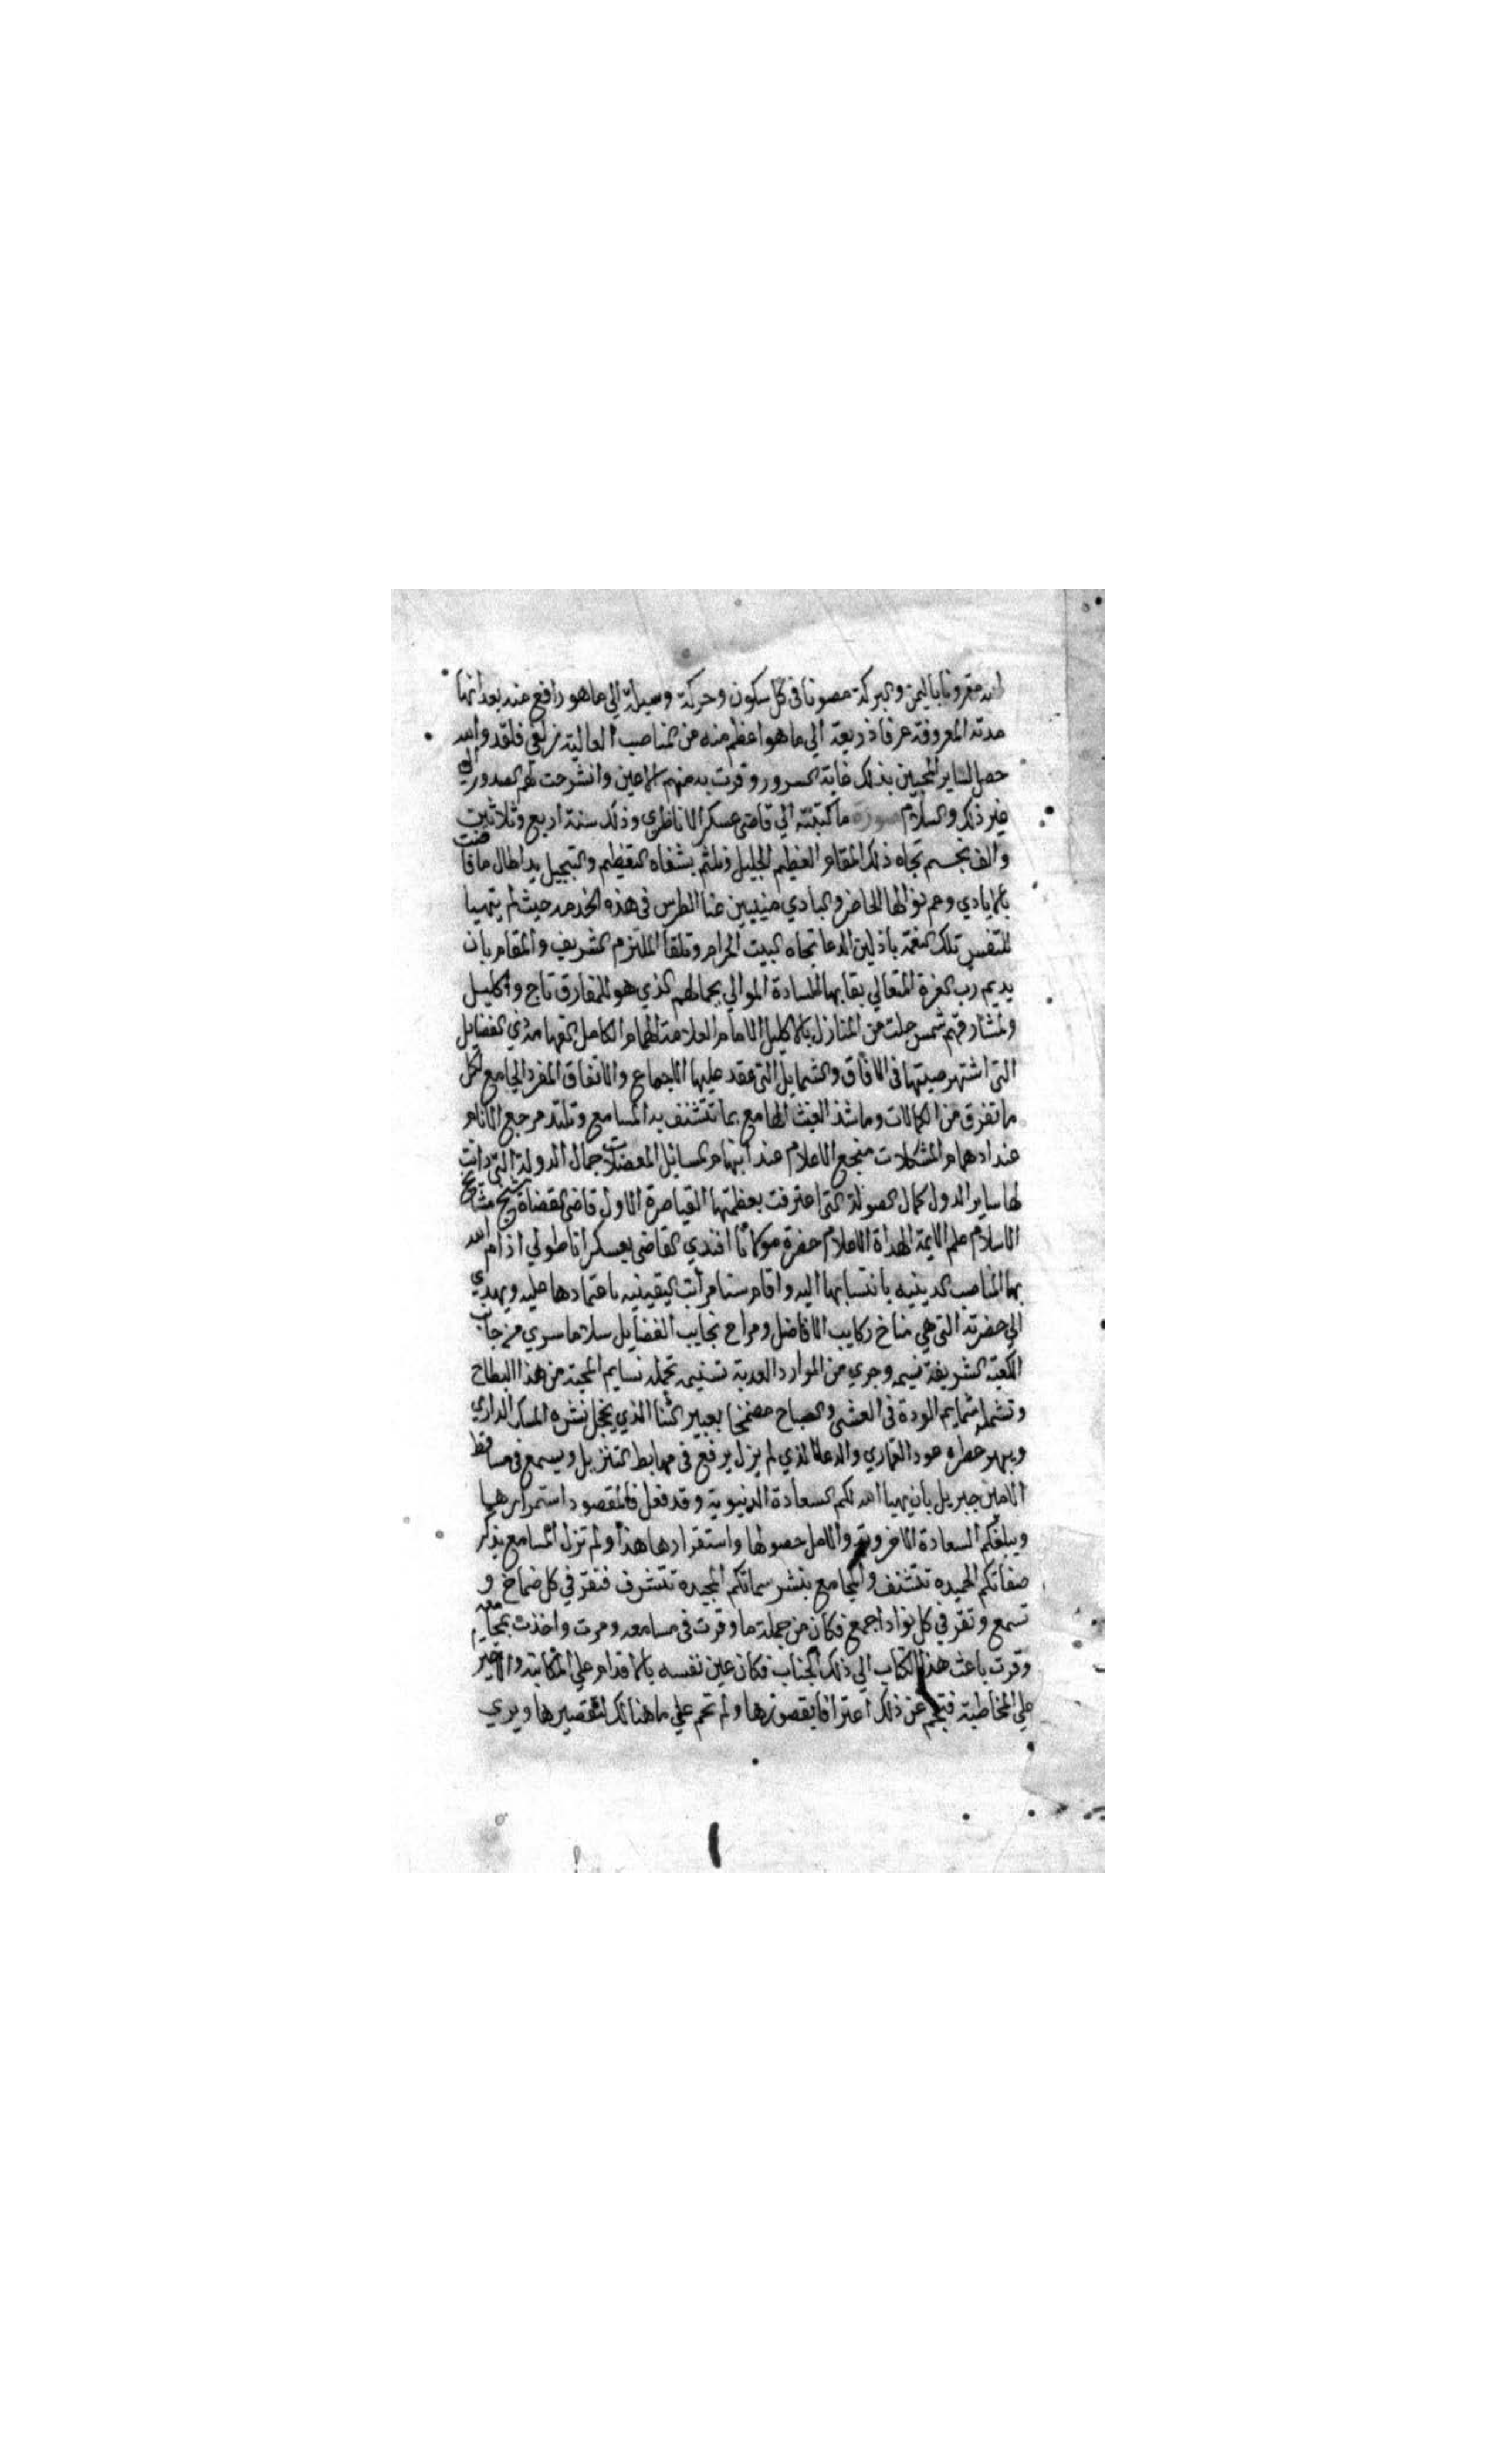 الله مقرونا باليمن والبركة مصونا في كل سكون وحركة وسيلة الي ما هو رافع منه بعد انتها
مدته المعروفة عرفا ذريعة الي ما هو اعظم منه من المناصب العالية زلفي فلقد والله
حصل لساير المحبين بذلك غاية السرور وقرت به منهم الاعين وانشرحت لهم الصدور الي
غير ذلك والسلام صورة ما كتبته الي قاضي عسكر الاناطولي وذلك سنة اربع وثلاثين
والف نجسم تجاه ذلك المقام العظيم الجليل ونلثم بشفاه التعظيم والتبجيل يدا طال ما فاضت
بالايادي وعم نوالها الحاضر والبادي منيبين عنا الطرس في هذه الخدمه حيث لم يتهيا
للنفس تلك النعمة باذلين الدعا تجاه البيت الحرام وتلقا الملتزم الشريف والمقام بان
يديم رب العزة المتعالي بقا بها السادة الموالي بجمالهم الذي هو للمفارق تاج واكليل
ولمشارقهم شمس حلت من المنازل بالاكليل الامام العلامة الهمام الكامل الفهامه ذي الفضايل
التي اشتهر صيتها في الافاق والشمايل التي عقد عليها الاجماع والاتفاق المفرد الجامع لكل
ما تفرق من الكمالات وما شذ الغيث الهامع بما تتشنف به المسامع وتلتذ مرجع الانام
عند ادهام المشكلات منجع الاعلام عند ابهام المسائل المعضلات جمال الدولة التي دانت
لها ساير الدول كمال الصولة التي اعترفت بعظمتها القياصرة الاول قاضي القضاة شيخ مشايخ
الاسلام علم الايمة الهداة الاعلام حضرة مولانا افندي القاضي بعسكر اناطولي ادام الله
بها المناصب الدينيه بانتسابها اليه واقام سنا مراتب اليقينيه باعتمادها عليه ويهدي
الي حضرته التي هي مناخ ركايب الافاضل ومراح نجايب الفضايل سلاما سري من جانب
الكعبة الشريفة نسيمه وجري من الموارد العذبة تسنيمه تحمله نسايم المحبة من هذا البطاح
وتشمله شمايم المودة في العشي والصباح مضمخا بعبير الثنا الذي يخجل نشره المسك الداري
ويبهر عطره عود القماري والدعا الذي لم يزل يرفع في مهابط التنزيل ويسمع في مساقط
الامين جبريل بان يهيا الله لكم السعادة الدنيوية وقد فعل فالمقصود استمرارها
ويبلغكم السعادة الاخروية والامل حصولها واستقرارها هذا ولم تزل المسامع بذكر
صفاتكم الحميده تتشنف والمجامع بنشر سماتكم المجيده تتشرف فتقر في كل صماخ و
تسمع وتقر في كل نواد اجمع فكان من جملة ما وقرت في مسامعه ومرت واخذت بمجامعه
وقرت باعث هذا الكتاب الي ذلك الجناب فكان عين نفسه بالاقدام علي المكاتبة والاخير
علي المخاطبة فتحجم عن ذلك اعترافا بقصورها ولم تحم علي ما هنالك لتقصيرها ويري